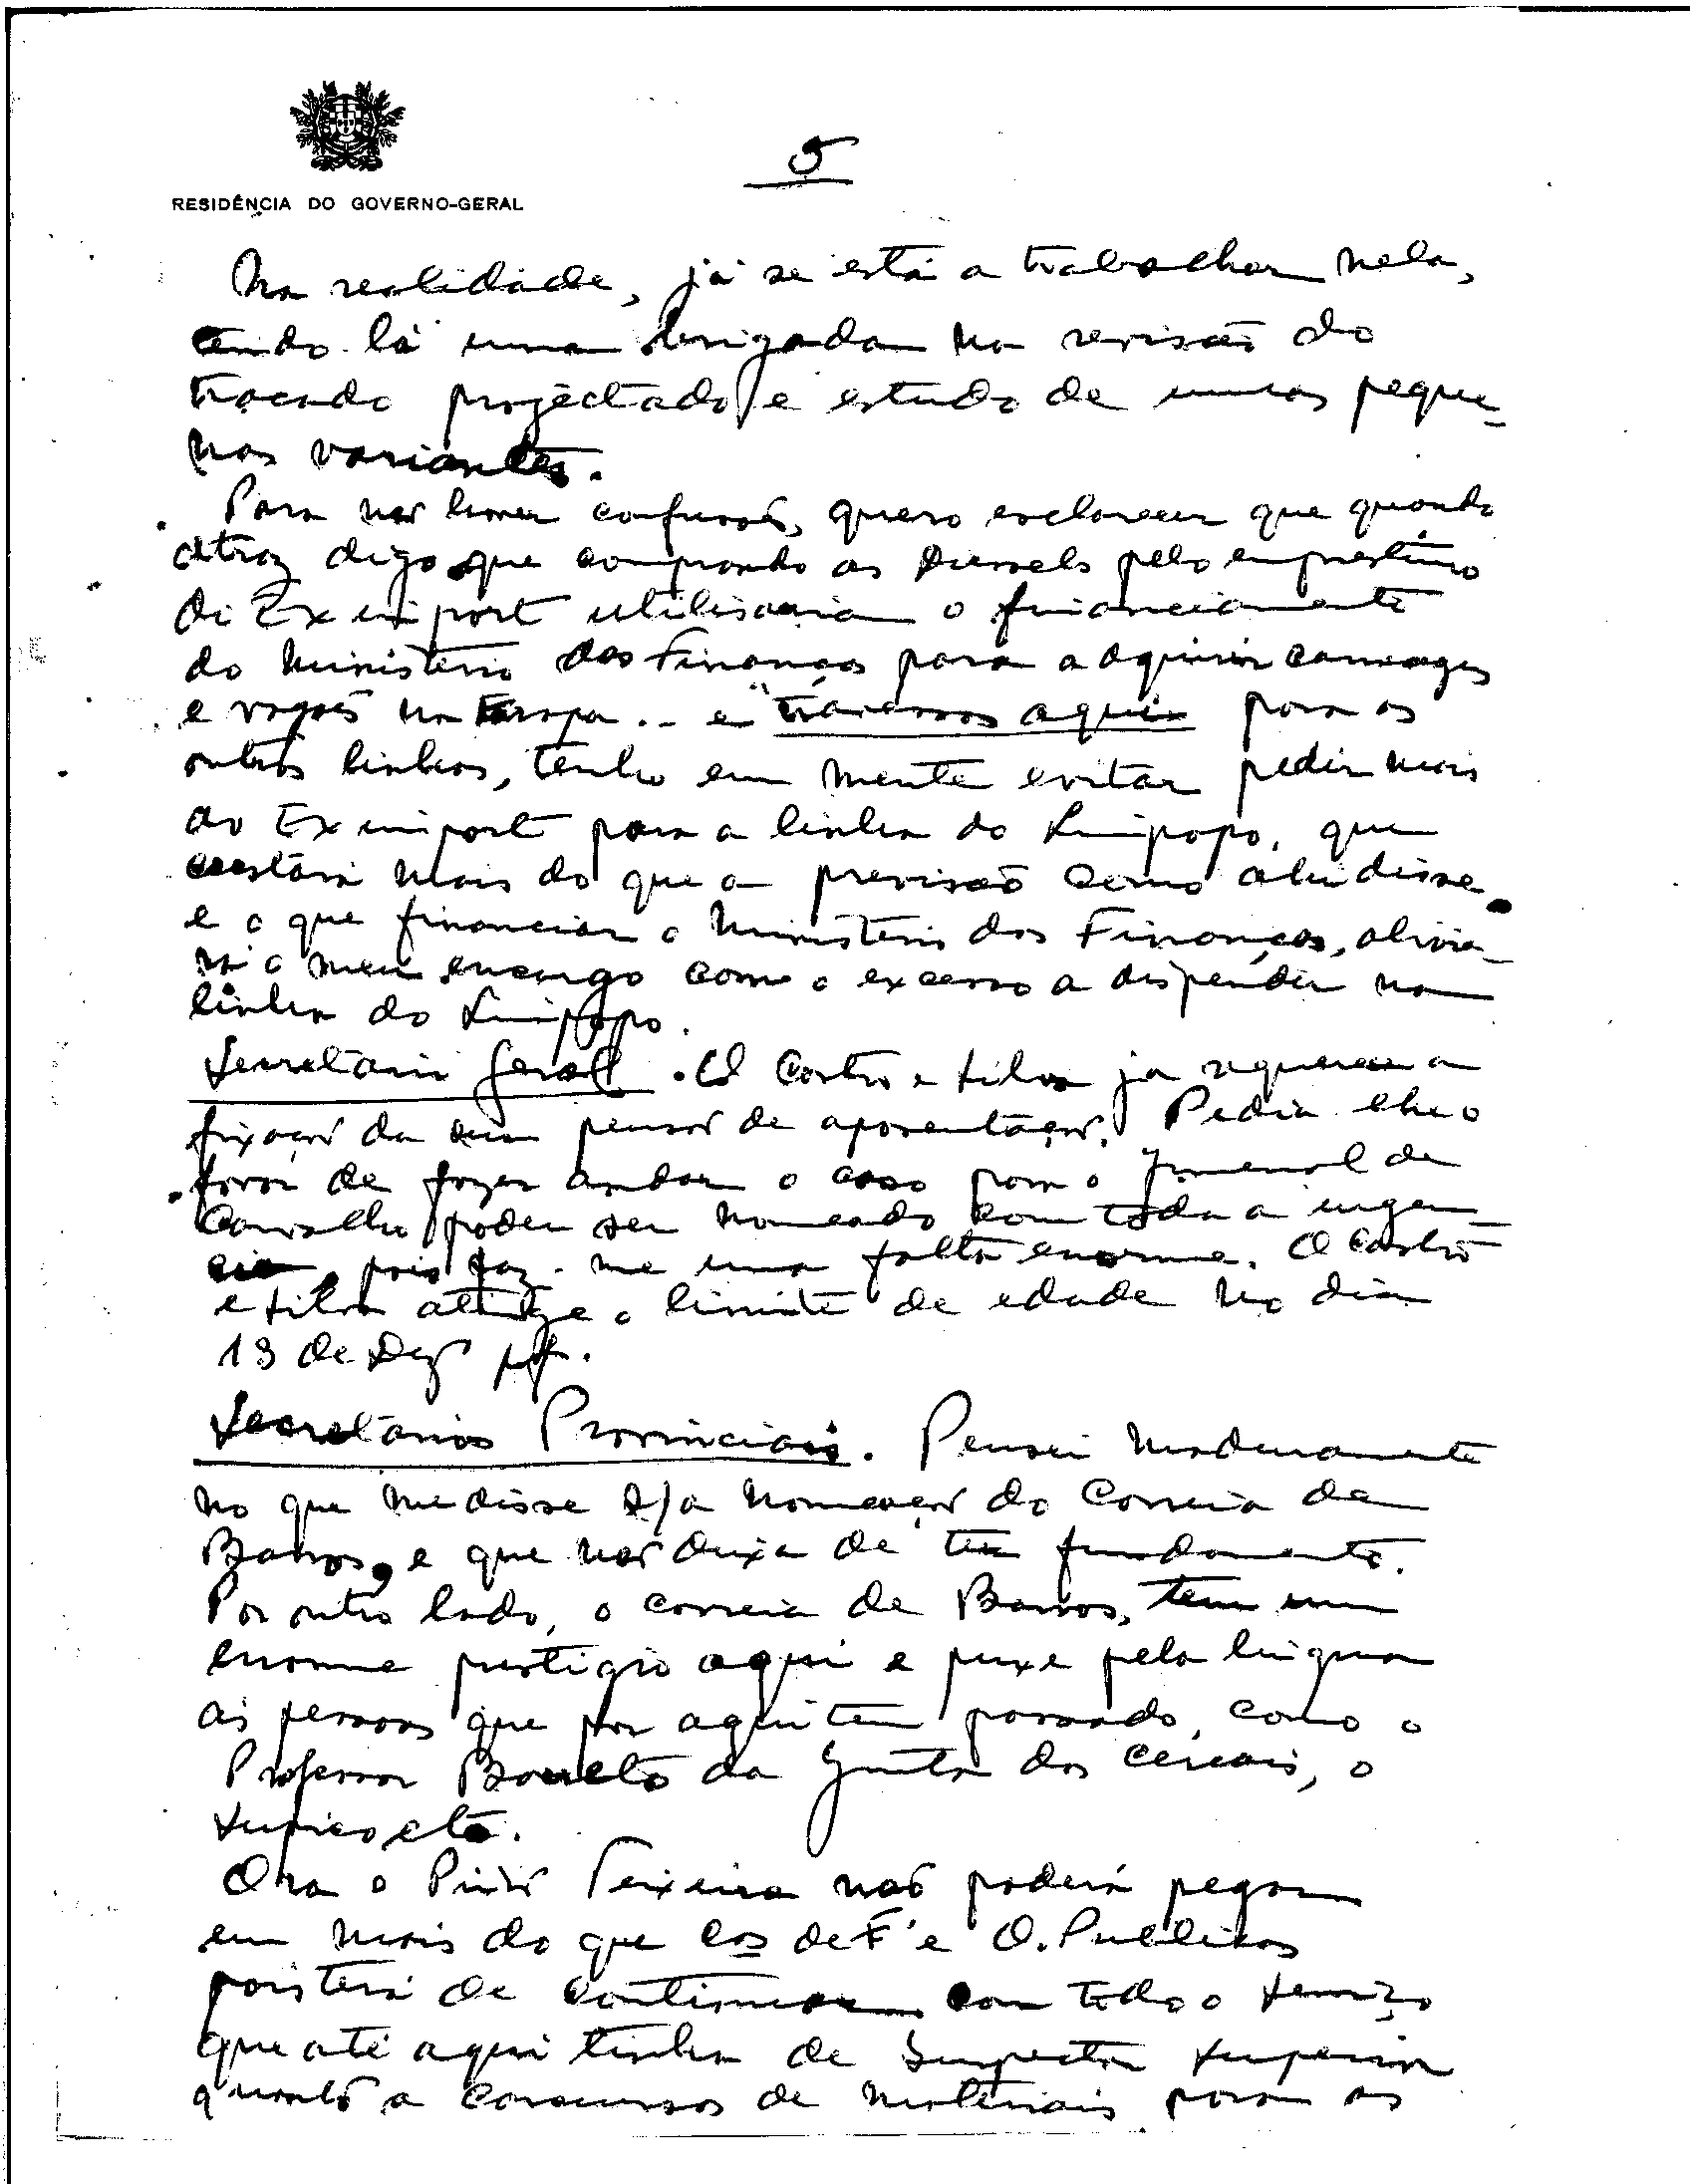 5
RESIDÊNCIA DO GOVERNO-GERAL
Na realidade, já se está a trabalhar nela,
tendo lá uma brigada na revisão do
traçado projectado e estudo de umas peque-
nas variantes.
Para não haver confusões, quero esclarecer que quando
atraz digo que comprando as Diesels pelo emprestimo
do Eximport utilisaria o financiamento
do Ministério das Finanças para adquirir carruagens
e vagões na Europa .. e travessas aqui para as
outras linhas, tenho em mente evitar pedir mais
ao Eximport para a linha do Limpopo, que
custará mais do que a previsão como ahi disse
e o que financiar o Ministério das Finanças, alivia-
rá o meu encargo com o excesso a dispender na
linha do Limpopo.
Secretário Geral. O Castro e Silva já requereu a
fixação da sua pensão de aposentação. Pedia-lhe o
favor de fazer andar o caso para o Juvenal de
Carvalho poder ser nomeado com toda a urgen-
cia, pois faz-me uma falta enorme. O Castro
e Silva atinge o limite de edade no dia
13 de Dezº pf.
Secretários Provinciais. Pensei maduramente
no que me disse s/a nomeação do Correia de
Barros, e que não deixa de ter fundamento.
Por outro lado, o Correia de Barros, tem um
enorme prestigio aqui e puxe pela lingua
ás pessoas que por aqui tem passado, como o
Professor Barreto da Junta dos Cereais, o
Supico etc.
Ora o Pinto Teixeira não poderá pegar
em mais do que Cos de F e O. Publicas
pois terá de continuar com todo o serviço
que até aqui tinha de Inspector Superior
quanto a concursos de materiais para os